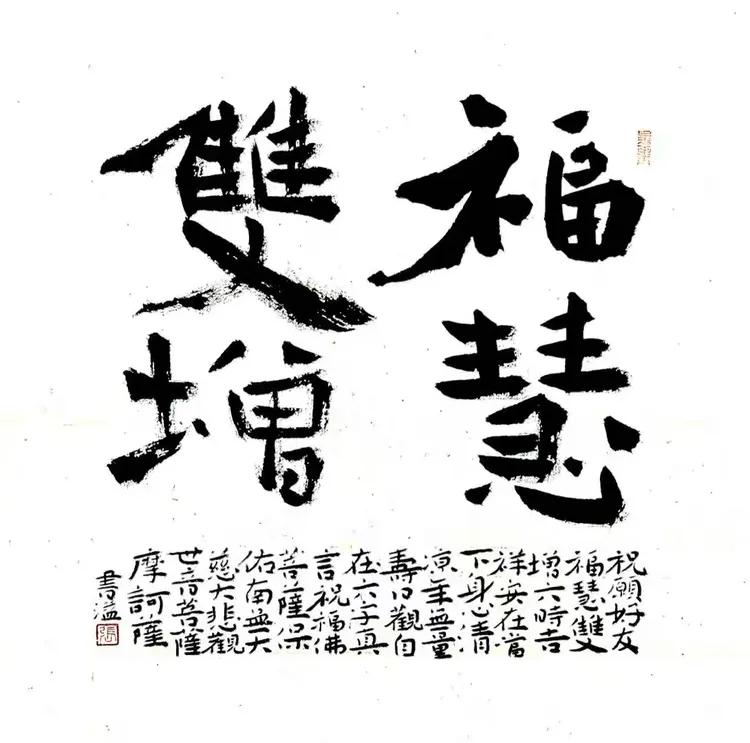 福慧
雙增
祝願好友
福慧雙
增六時吉
祥安在當
下身心清
涼年無量
壽口觀自
在六字真
言祝福佛
菩薩保
佑南無大
慈大悲觀
世音菩薩
摩訶薩
書溢
張